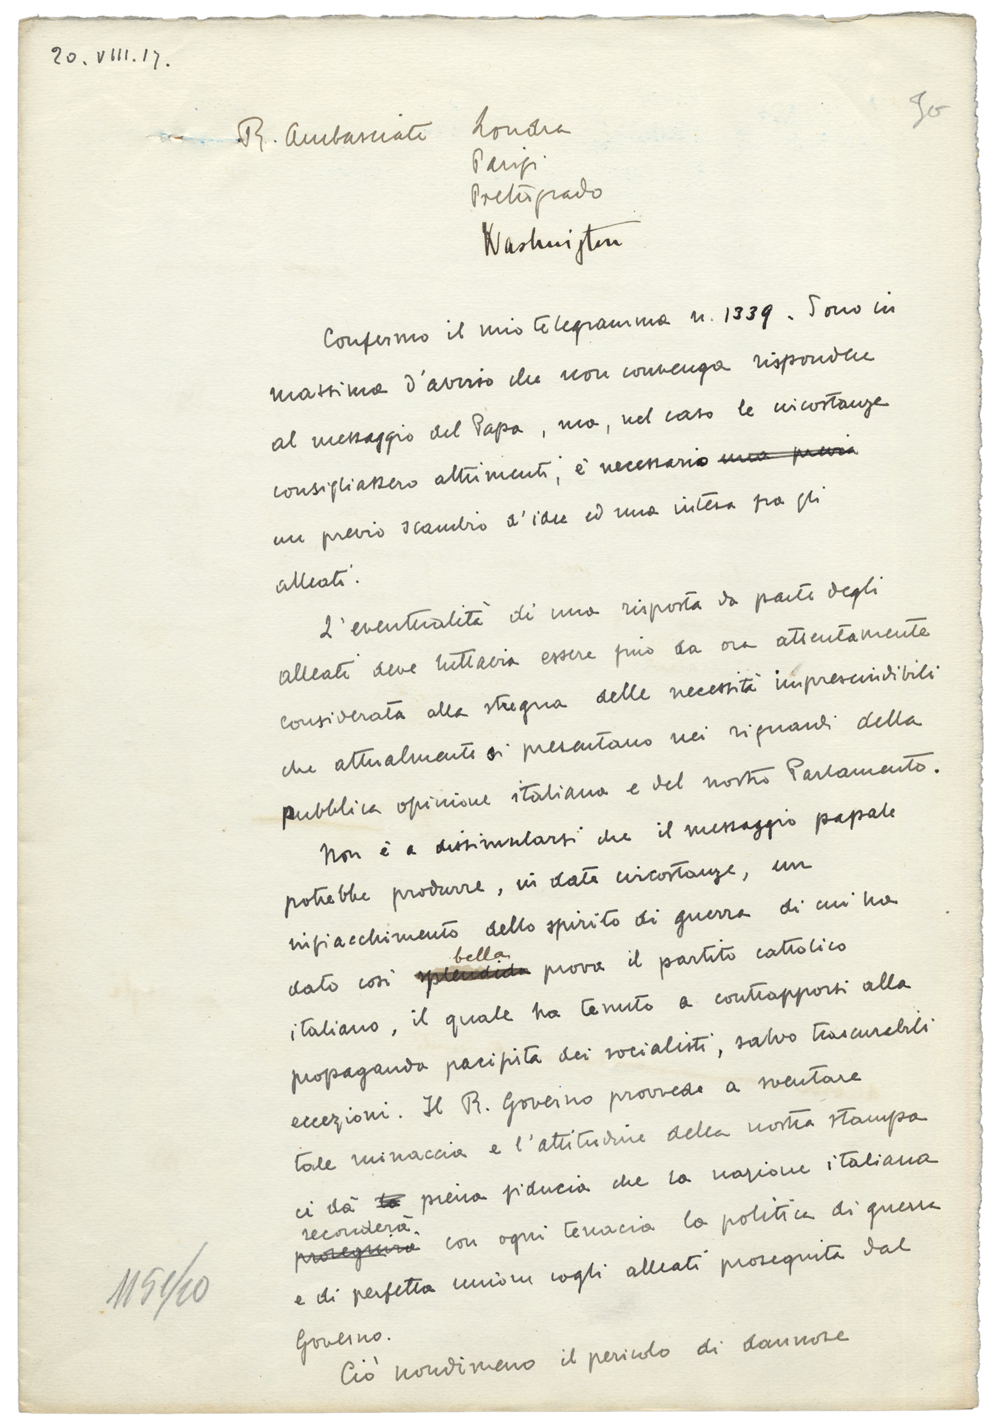 20. VIII. 17.
30
R. Ambasciate Londra
Parigi
Pietrogrado
Washington
Confermo il mio telegramma n. 1339. Sono in
massima d'avviso che non convenga rispondere
al messaggio del Papa, ma, nel caso le circostanze
consigliassero altrimenti, è necessario una previa
un previo scambio d'idee ed una intesa fra gli
alleati.
L'eventualità di una risposta da parte degli
alleati deve tuttavia essere fino da ora attentamente
considerata alla stregua delle necessità imprescindibili
che attualmente si presentano nei riguardi della
pubblica opinione italiana e del nostro Parlamento.
Non è a dissimularsi che il messaggio papale
potrebbe produrre, in date circostanze, un
infiacchimento dello spirito di guerra di cui ha
bella
dato così splendida prova il partito cattolico
italiano, il quale ha tenuto a contrapporsi alla
propaganda pacifista dei socialisti, salvo trascurabili
eccezioni. Il R. Governo provvede a sventare
tale minaccia e l'attitudine della nostra stampa
ci dà la piena fiducia che la nazione italiana
seconderà
proseguirà con ogni tenacia la politica di guerra
e di perfetta unione cogli alleati proseguita dal
Governo.
Ciò nondimeno il pericolo di dannose